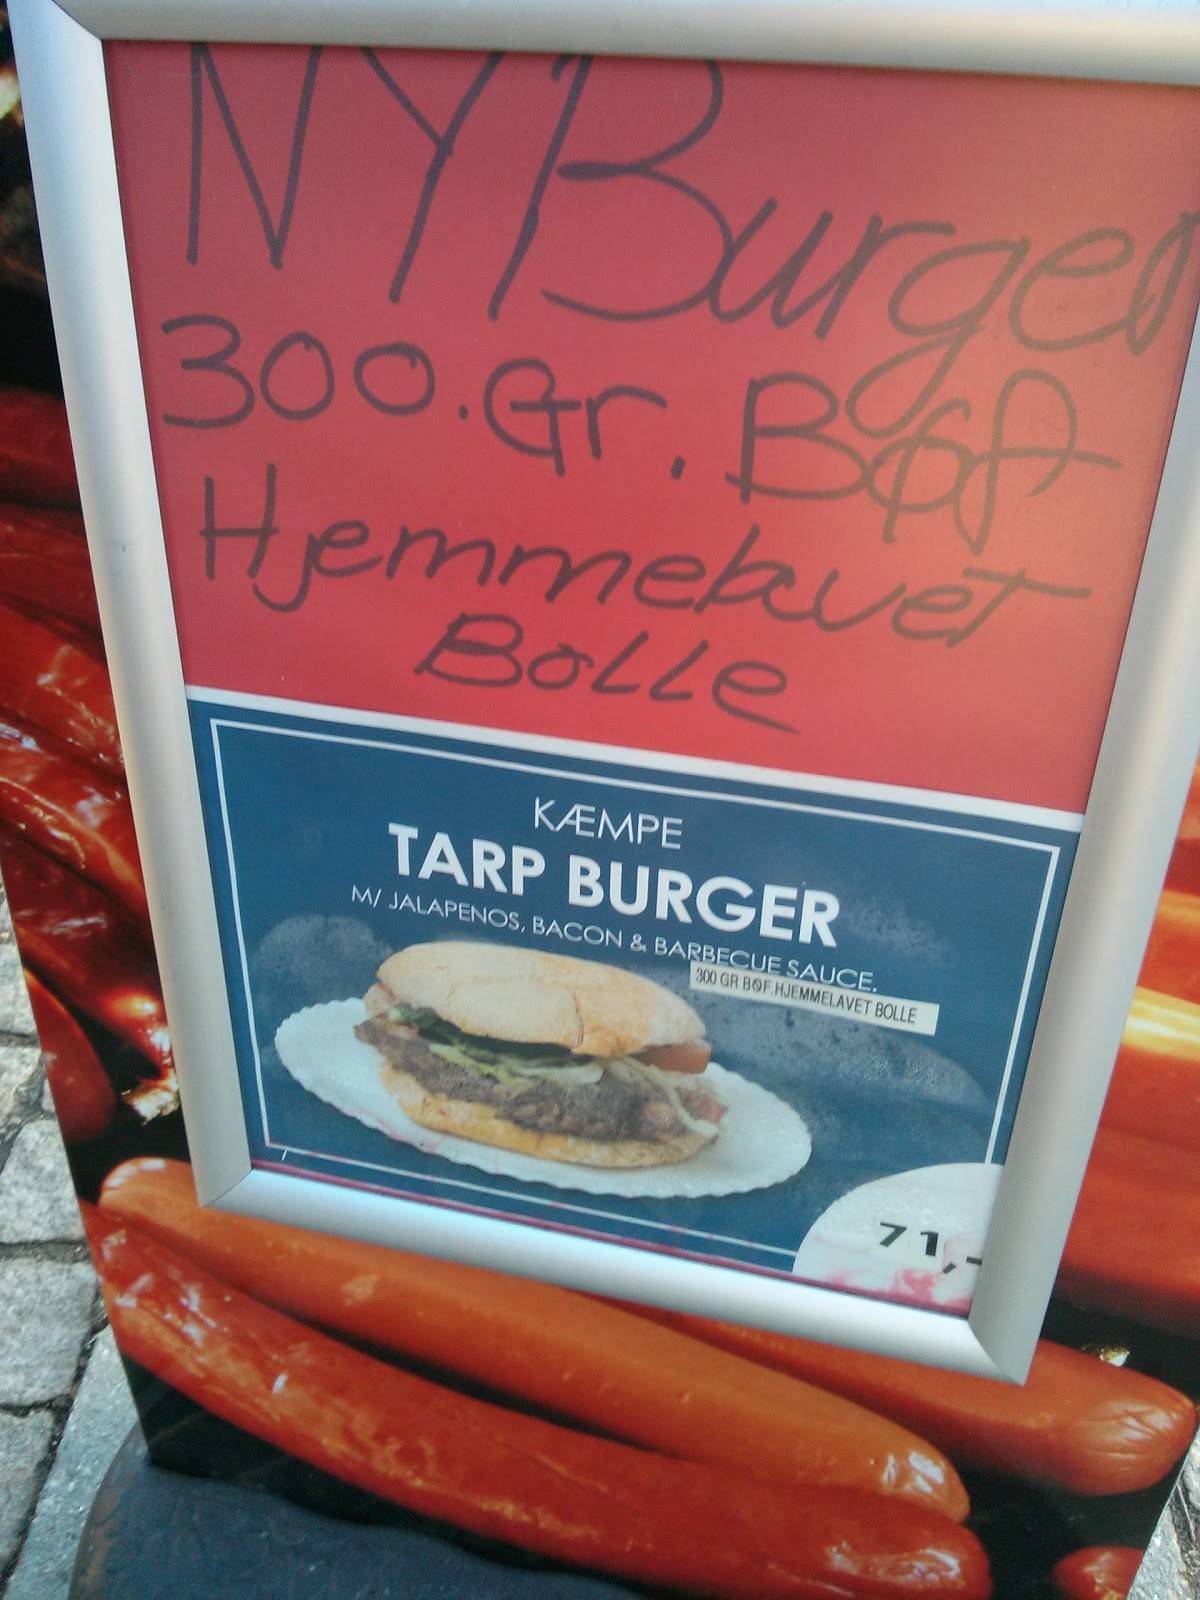 NY Burger
300.Gr. Bøf
Hjemmelavet
Bolle
KÆMPE
TARP BURGER
M/ JALAPENOS, BACON & BARBECUE SAUCE.
300 GR BØF.HJEMMELAVET BOLLE
71,-